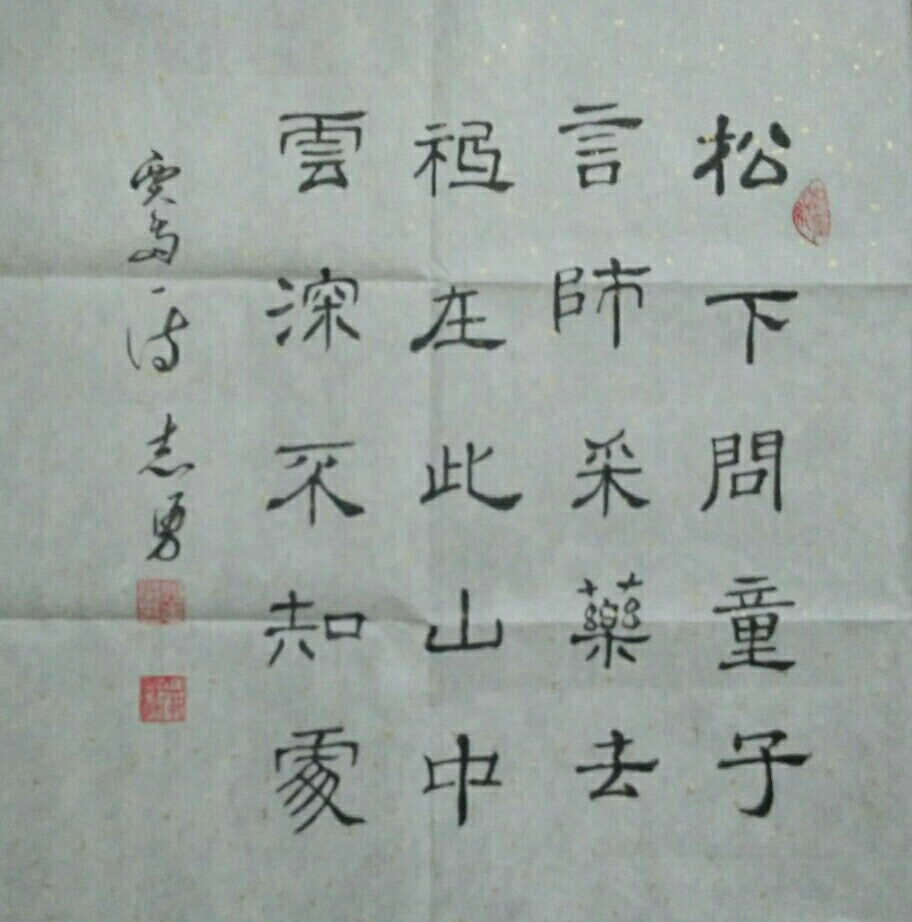 松下問童子
言師采藥去
祗在此山中
雲深不知處
賈島一诗 志勇